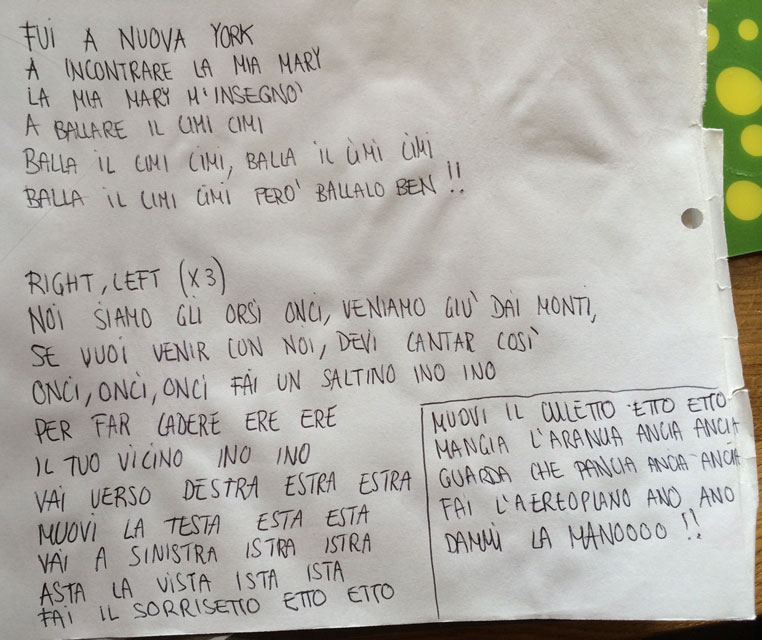 FUI A NUOVA YORK
A INCONTRARE LA MIA MARY
LA MIA MARY M'INSEGNO'
A BALLARE IL CIMI CIMI
BALLA IL CIMI CIMI, BALLA IL CIMI CIMI
BALLA IL CIMI CIMI PERO' BALLALO BEN !!
RIGHT, LEFT (X3)
NOI SIAMO GLI ORSI ONCI, VENIAMO GIU' DAI MONTI,
SE VUOI VENIR CON NOI, DEVI CANTAR COSI'
ONCI, ONCI, ONCI FAI UN SALTINO INO INO
PER FAR CADERE ERE ERE
IL TUO VICINO INO INO
VAI VERSO DESTRA ESTRA ESTRA
MUOVI LA TESTA ESTA ESTA
VAI A SINISTRA ISTRA ISTRA
ASTA LA VISTA ISTA ISTA
FAI IL SORRISETTO ETTO ETTO
MUOVI IL CULETTO ETTO ETTO
MANGIA L'ARANCIA ANCIA ANCIA
GUARDA CHE PANCIA ANCIA ANCIA
FAI L'AEREOPLANO ANO ANO
DAMMI LA MANOOOO !!